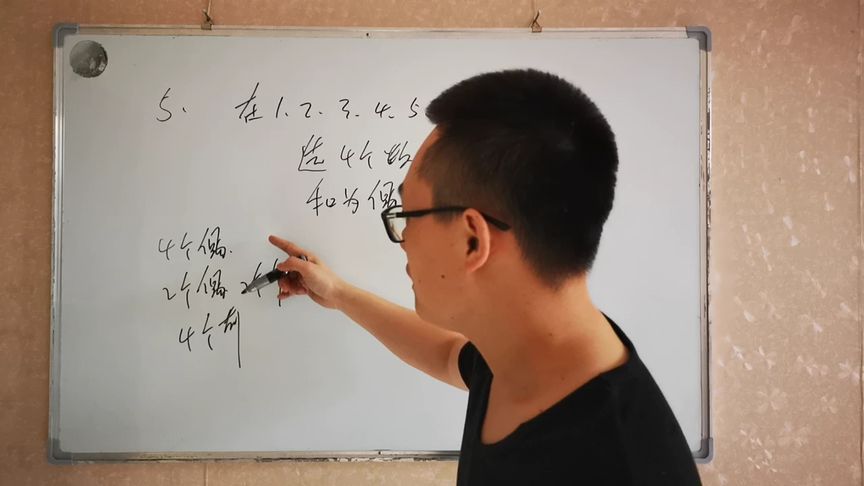 5. 在1.2.3.4.5
选4个数
和为偶
4个偶.
2个偶 2个
4个奇